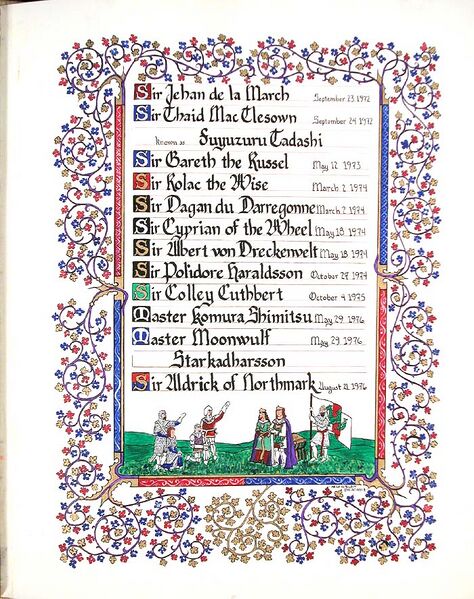 Sir Jehan de la March September 23, 1972
Sir Thaid MacClesown September 24, 1972
Known as Fuyuzuru Tadashi
Sir Gareth the Russel May 12, 1973
Sir Rolac the Wise March 2, 1974
Sir Dagan du Darregonne March 2, 1974
Sir Cyprian of the Wheel May 18, 1974
Sir Albert von Dreckenvelt May 18, 1974
Sir Polidore Haraldsson October 27, 1974
Sir Colley Cuthbert October 4, 1975
Master Komura Shimitsu May 29, 1976
Master Moonwulf May 29, 1976
Starkadharsson
Sir Aldrick of Northmark August 21, 1976